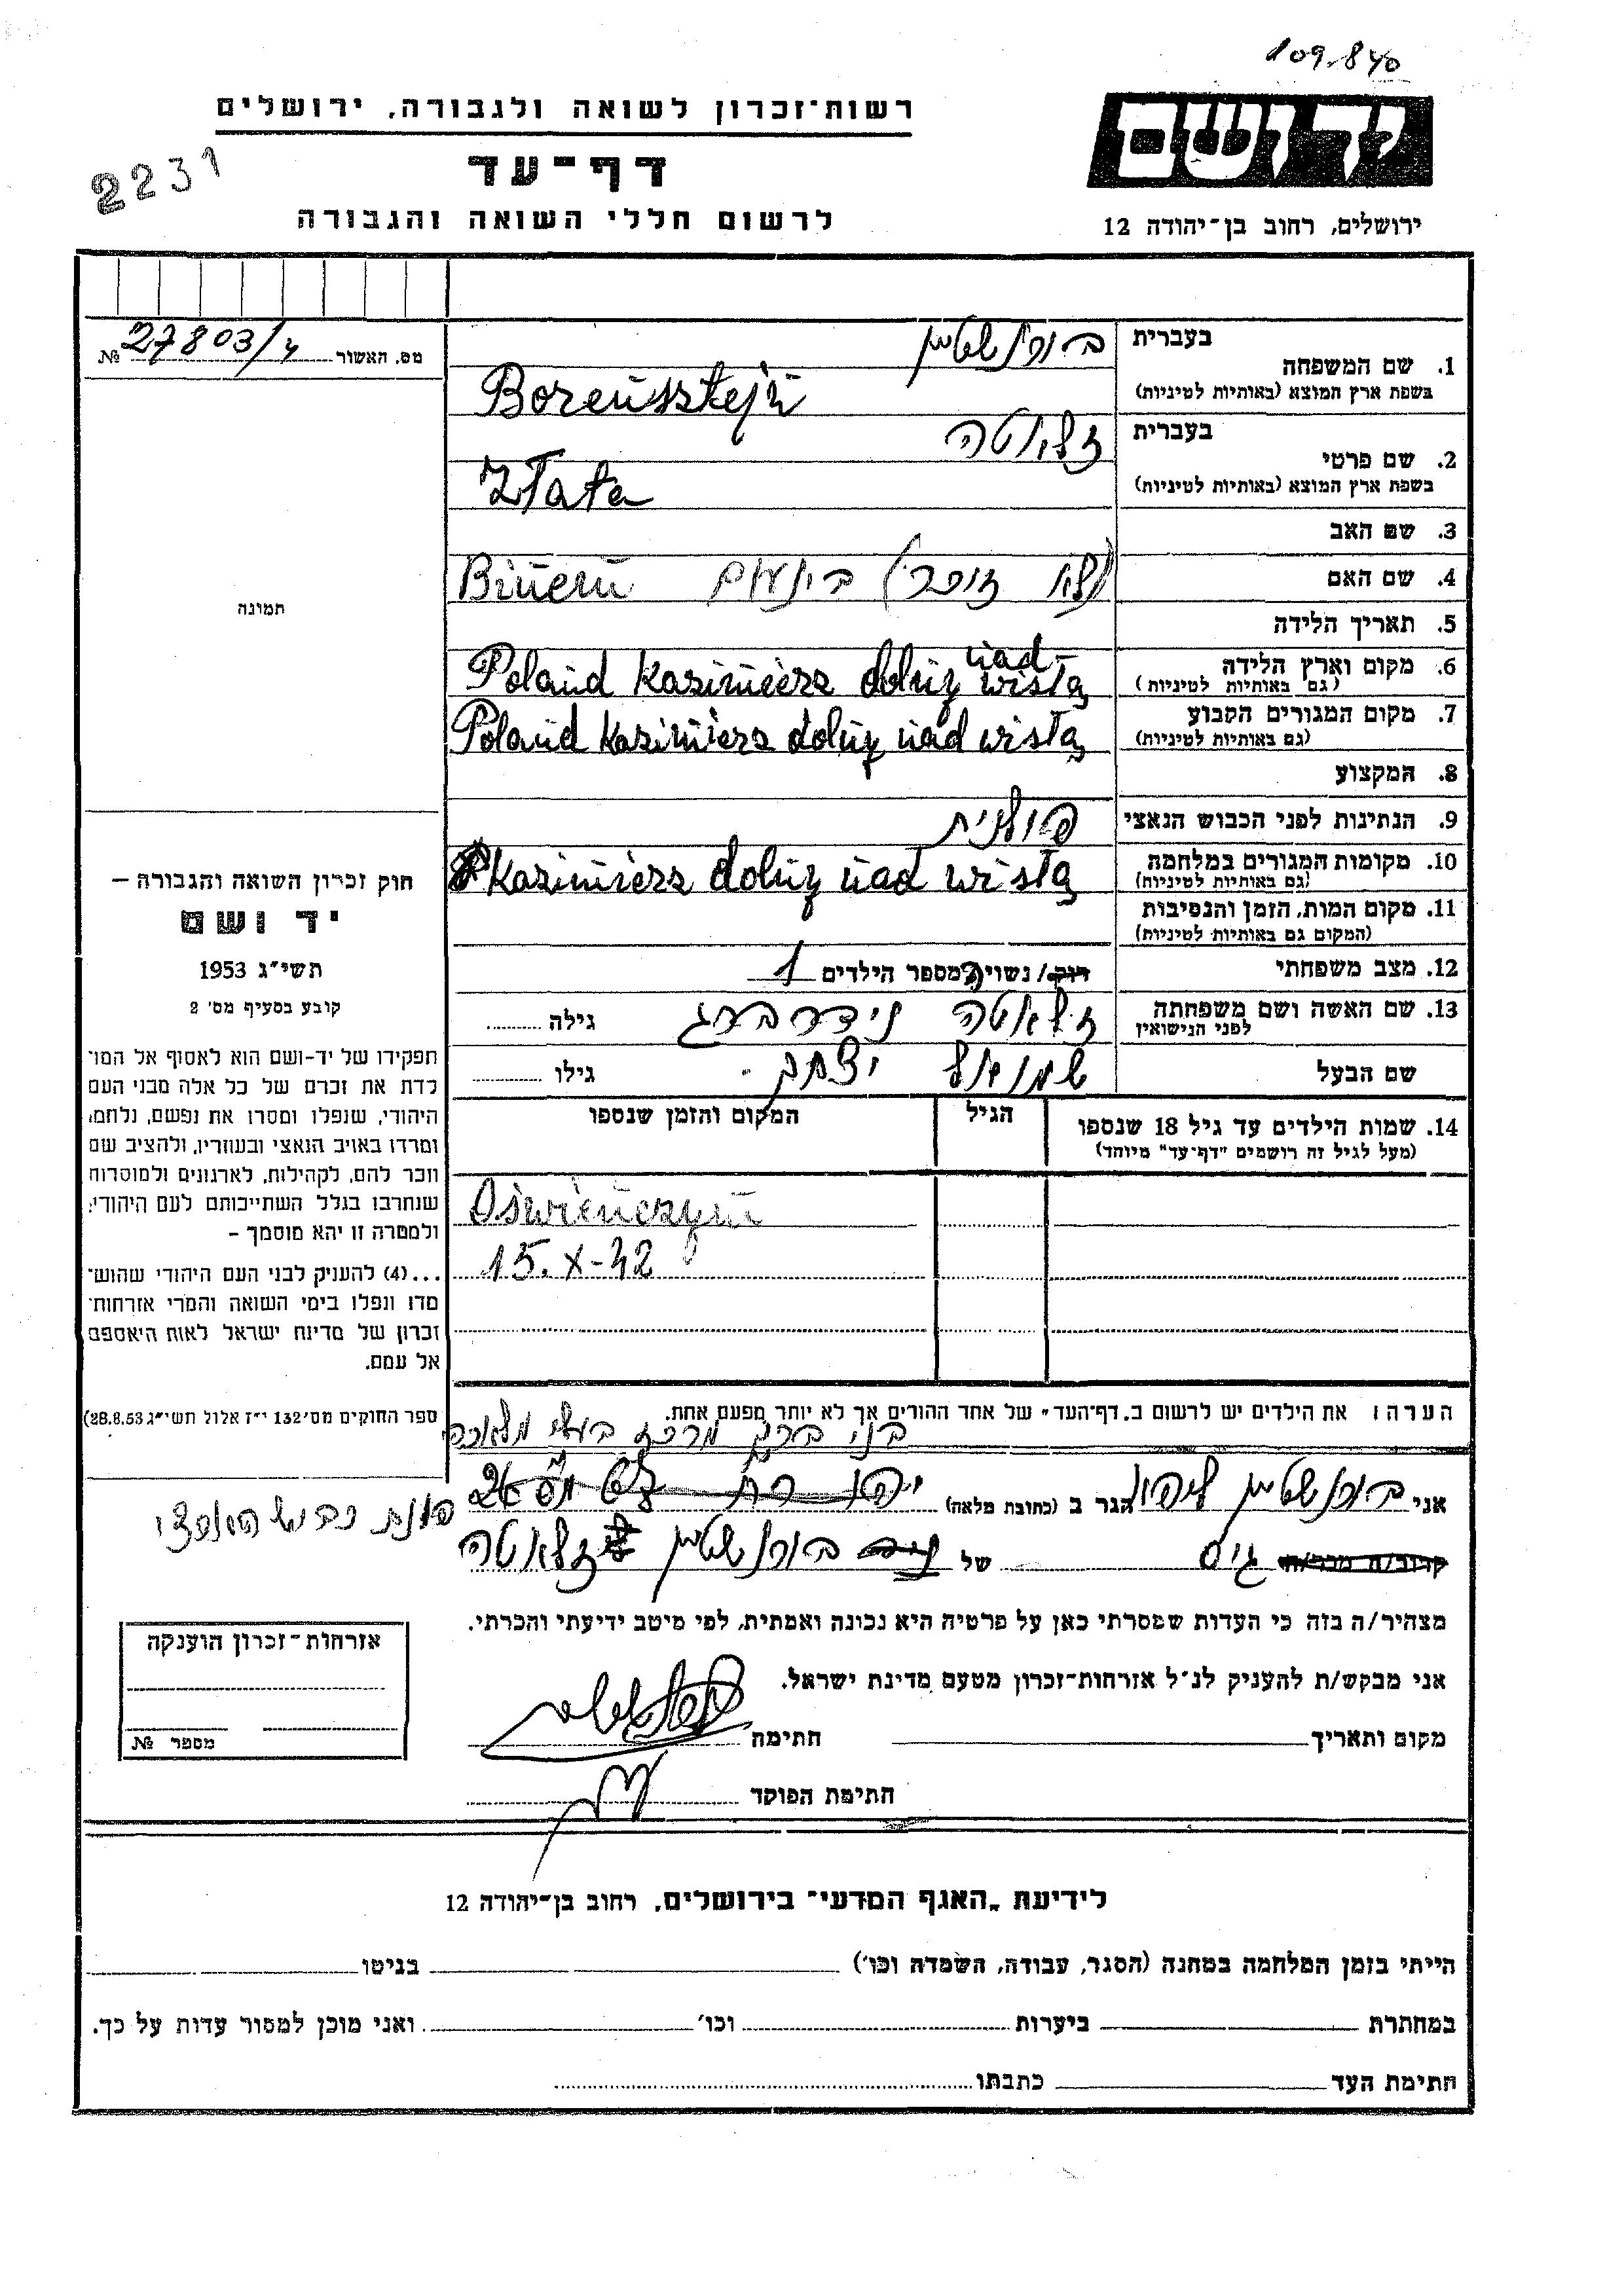 109.840
רשות־זכרון לשואה ולגבורה, ירושלים
יד ושם
דף־עד
2231
לרשום חללי השואה והגבורה
ירושלים, רחוב בן־יהודה 12
מס. האשור 27803/4 №
בעברית בורנשטיין
1. שם המשפחה
בשפת ארץ המוצא (באותיות לטיניות) Borensztejn
בעברית זלאטה
2. שם פרטי
בשפת ארץ המוצא (באותיות לטיניות) Złata
3. שם האב
4. שם האם
Binem בינעם
תמונה
5. תאריך הלידה
6. מקום וארץ הלידה
(גם באותיות לטיניות) Poland Kazimierz dolny nad wisłą
7. מקום המגורים הקבוע
(גם באותיות לטיניות) Poland Kazimierz dolny nad wisłą
8. המקצוע
9. הנתינות לפני הכבוש הנאצי פולנית
10. מקומות המגורים במלחמה
(גם באותיות לטיניות) Kazimierz dolny nad wisłą
11. מקום המות, הזמן והנסיבות
(המקום גם באותיות לטיניות)
12. מצב משפחתי רוק/נשוי ה מספר הילדים 1
13. שם האשה ושם משפחתה
לפני הנישואין זלאטה נידרברג גילה
שם הבעל שמואל יצחק גילו
14. שמות הילדים עד גיל 18 שנספו
(מעל לגיל זה רושמים "דף־עד" מיוחד)
הגיל
המקום והזמן שנספו
Oświenczym
15.X-42
הערה: את הילדים יש לרשום ב"דף־העד" של אחד ההורים אך לא יותר מפעם אחת.
חוק זכרון השואה והגבורה –
יד ושם
תשי"ג 1953
קובע בסעיף מס' 2
תפקידו של יד־ושם הוא לאסוף אל המו־
לדת את זכרם של כל אלה מבני העם
היהודי, שנפלו ומסרו את נפשם, נלחמו
ומרדו באויב הנאצי ובעוזריו, ולהציב שם
וזכר להם, לקהילות, לארגונים ולמוסדות
שנחרבו בגלל השתייכותם לעם היהודי;
ולמטרה זו יהא מוסמך –
...(4) להעניק לבני העם היהודי שהוש־
מדו ונפלו בימי השואה והמרי אזרחות־
זכרון של מדינת ישראל לאות היאספם
אל עמם.
ספר החוקים מס' 132 י"ז אלול תשי"ג 28.8.53)
בני ברק מרכז בעלי מלאכה
אני בורנשטיין הגר ב (כתובת מלאה)
קרוב/ה מכר/ה גיס של בורנשטיין זלאטה
מצהיר/ה בזה כי העדות שמסרתי כאן על פרטיה היא נכונה ואמתית, לפי מיטב ידיעתי והכרתי.
אני מבקש/ת להעניק לנ"ל אזרחות־זכרון מטעם מדינת ישראל.
מקום ותאריך חתימה
חתימת הפוקד
אזרחות־זכרון הוענקה
מספר №
לידיעת "האגף המדעי" בירושלים, רחוב בן־יהודה 12
הייתי בזמן המלחמה במחנה (הסגר, עבודה, השמדה וכו') בגיטו
במחתרת ביערות וכו' ואני מוכן למסור עדות על כך.
חתימת העד כתבתו